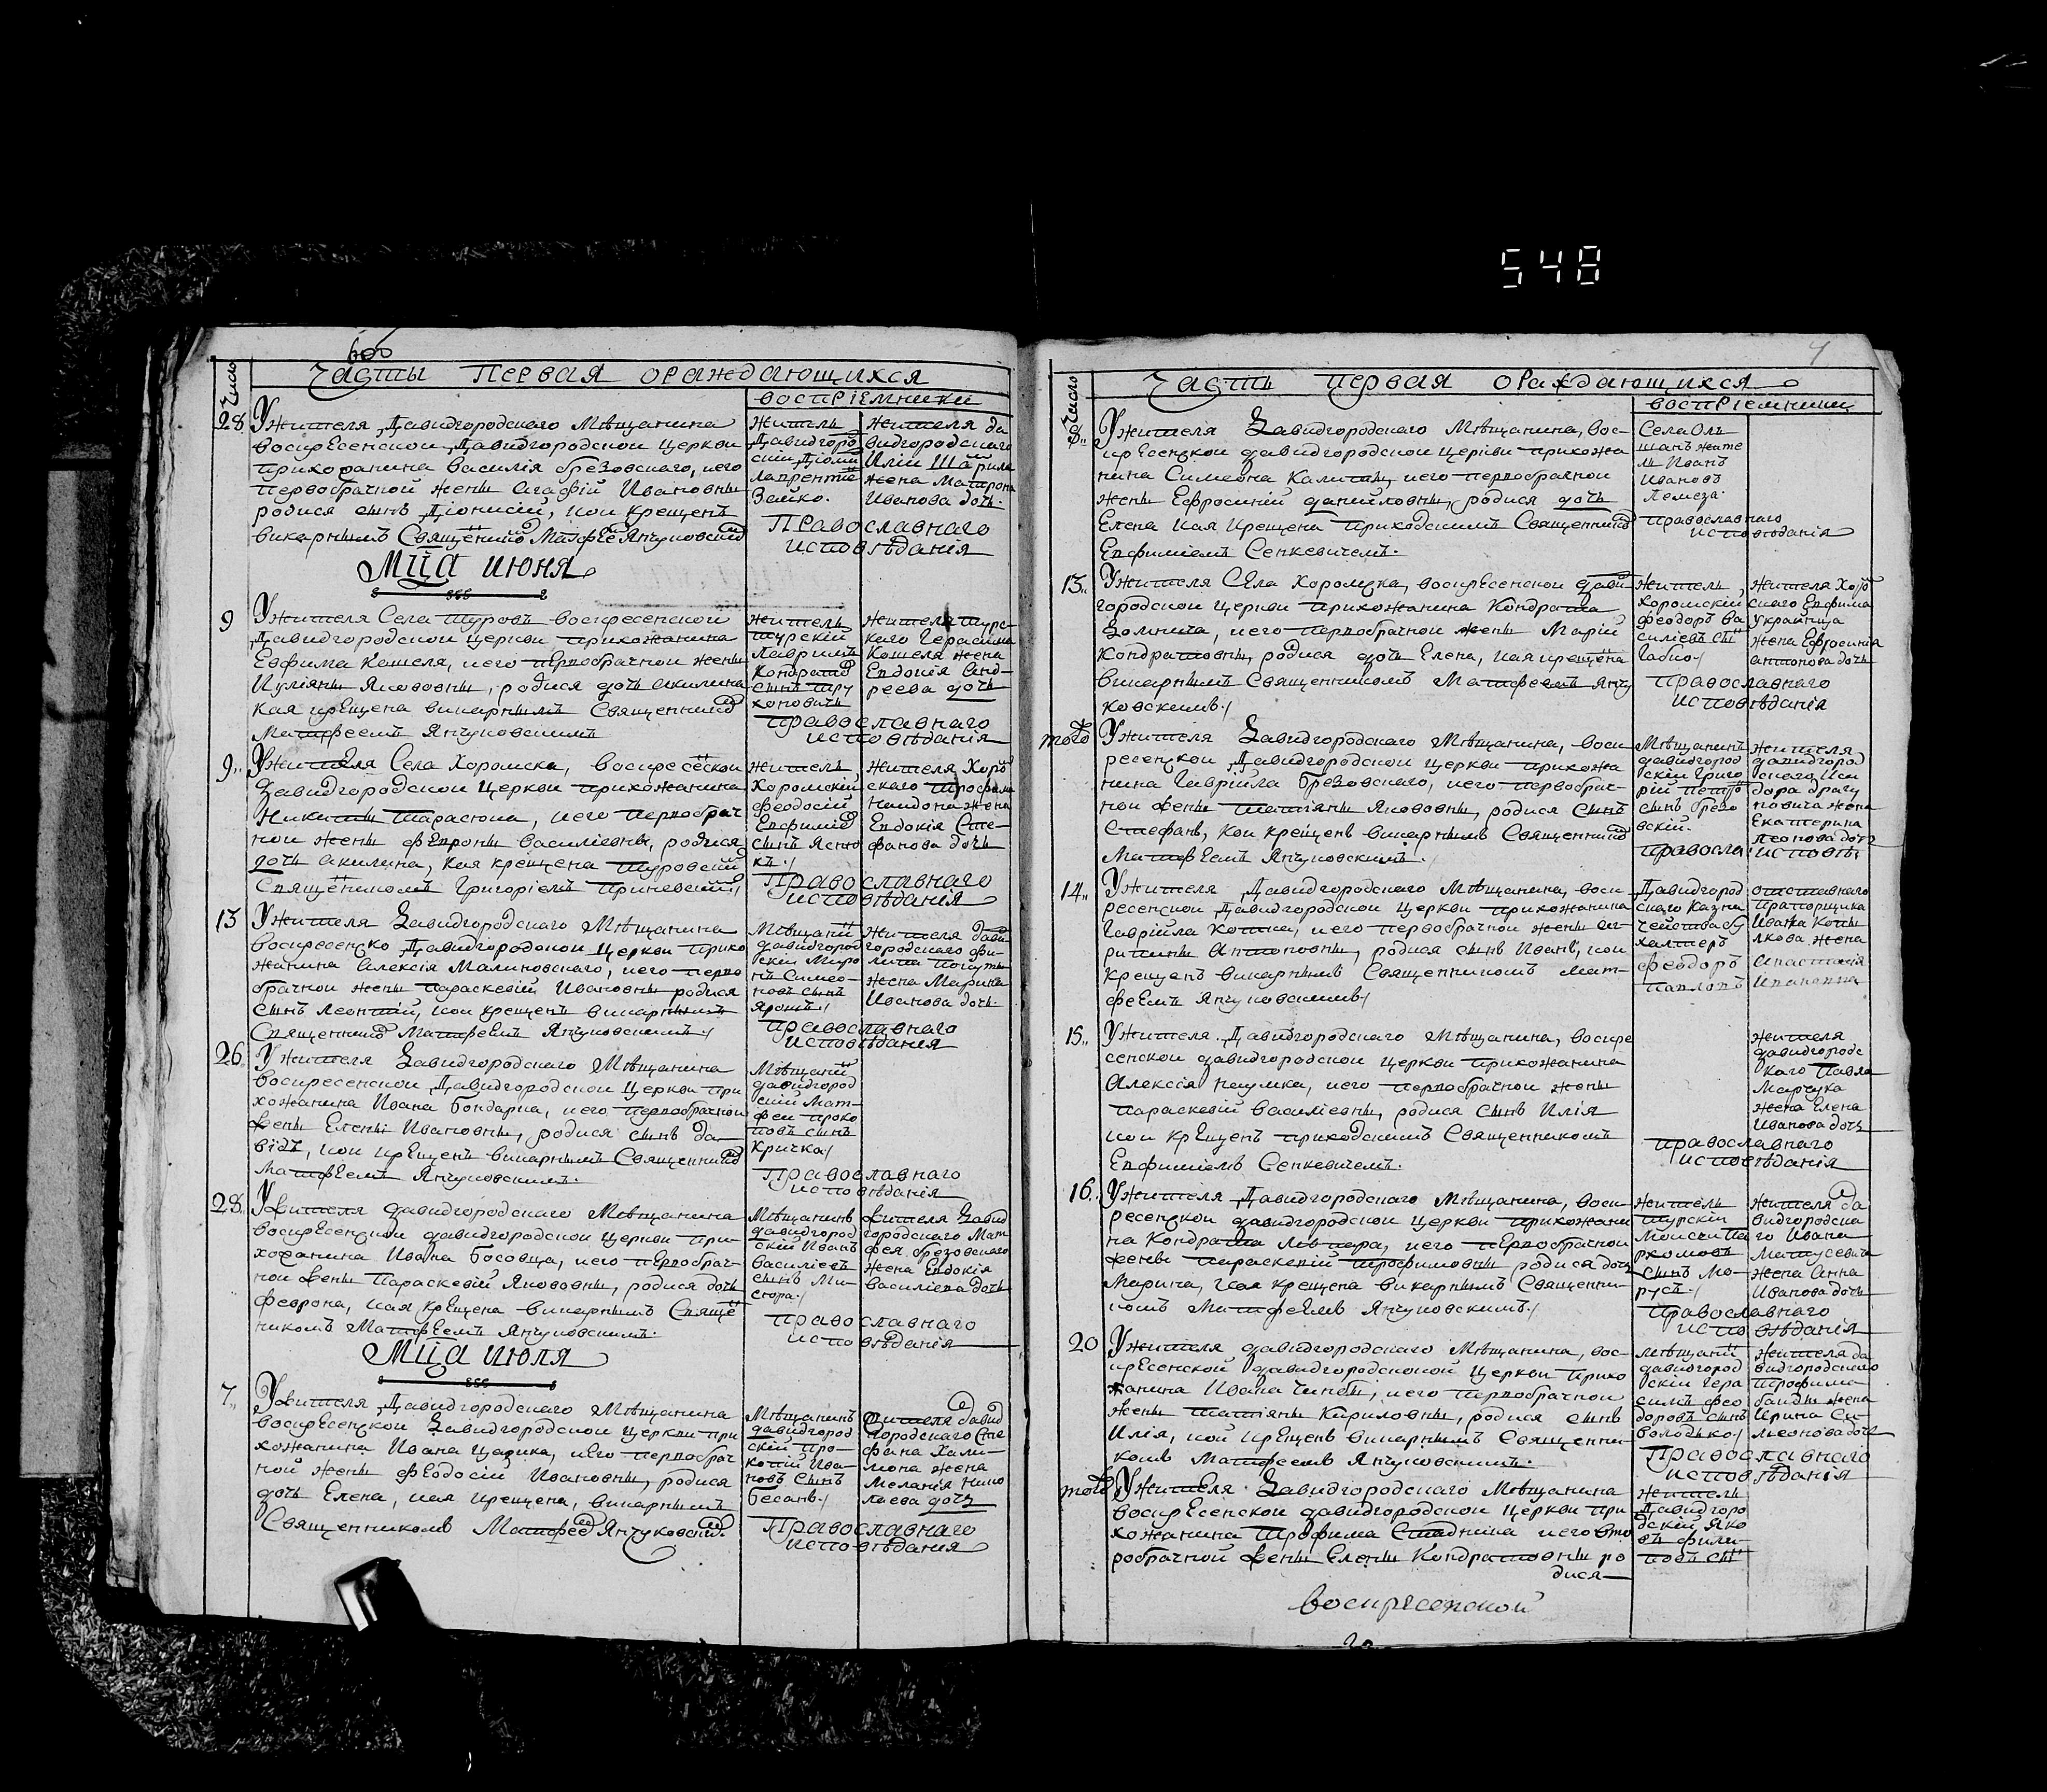 548
600
Число
Части Первая ораждающихся
воспріемники
28 Ужителя Давидгородскаго Мѣщанина
воскресенской Давидгородской церкви
прихожанина Василія брезовскаго, иего
первобрачной жены Агафій Ивановны
родися сынъ Діонисій, кои крещенъ
викарнымъ Священико Матфее Янчуковски
житель
Давидгоро
скій Діоми
лаврентіе
Зайко.
жителя да
видгородскаго
Иліи
жена Матрона
Иванова дочь.
Православнаго
исповѣданія
Мца июня
9 Ужителя Села Туровъ воскресенской
Давидгородской церкви прихожанина
Евфима Кошеля, иего первобрачной жены
Иуліяны Якововны, родися дочь акилина
кая крещена викарнымъ Священнико
Матфеемъ Янчуковскимъ
житель
турскій
лавринъ
Кондрато
сынъ тру
хоновичъ
жителя турс-
каго Герасима
Кошеля жена
Евдокія Анд-
реева дочь
православнаго
исповѣданія
9 Ужителя Села Хоромска, воскресеской
Давидгородской церкви прихожанина
Никиты Тарасюка, иего первобрач
ной жены февроны василіевны, родися
дочь акилина, кая крещена туровски
Священикомъ Григоріемъ
житель
Хоромскій
феодосій
Евфиміо
сынъ Ясню
къ
жителя Хоро
скаго трофима
жена
Евдокія Сте-
фанова дочь
Православнаго
исповѣданія
13 Ужителя Давидгородскаго Мѣщанина
воскресенско Давидгородской церкви прихо
жанина алексія Малиновскаго, иего перво
брачной жены параскевій Ивановны родися
сынъ леонтій, кои крещенъ викарнымъ
Священнико Матфеемъ Янчуковскимъ
Мѣщани
давидгород
скій Миро
нъ Симео-
новъ сынъ
жителя дави
городскаго фи-
липа
жена Марина
Иванова дочь.
православнаго
исповѣданія
26 Ужителя Давидгородскаго Мѣщанина
воскресенской Давидгородской церкви при
хожанина Ивана бондарца, иего первобрачной
жены Елены Ивановны, родися сынъ да
відъ, кои крещенъ викарнымъ Священнико
Матфеемъ Янчуковскимъ.
Мѣщани
давидгород
скій Мат-
феи проко
повъ сынъ
Кричка
Православнаго
исповѣданія
28 Ужителя давидгородскаго Мѣщанина
воскресенской давидгородской церкви при-
хожанина Ивана босовца, иего первобрач-
ной жены Параскевій Якововны, родися дочь
феврона, кая крещена викарнымъ Свяще
никомъ Матфеемъ Янчуковскимъ.
Мѣщанинъ
давидгород
скій Иванъ
василіевъ
сынъ Ми-
сюра
жителя Давид
городскаго Мат
фея брезовскаго
жена Евдокія
василіева дочь
православнаго
исповѣданія
Мца июля
7 Ужителя Давидгородскаго Мѣщанина
воскресенской Давидгородской церкви при
хожанина Ивана Царика, иего первобрач
ной жены феодосіи Ивановны, родися
дочь Елена, кая крещена, викарнымъ
Священникомъ Матфее Янчуковски
Мѣщанинъ
давидгород
скій про-
копій Ива-
новъ сынъ
бесанъ
жителя давид
городскаго Сте
фана Хали-
мона жена
Меланія Нико
лаева дочь
Православнаго
исповѣданія
7
Число
Часть первая ораждающихся
воспріемники
8 Ужителя Давидгородскаго Мѣщанина, вос-
кресенской давидгородской церкви прихожа
нина Симеона Калиты, иего первобрачной
жены Ефросиній данійловны, родися дочь
Елена кая крещена приходскимъ Священнико
Евфиміемъ Сенкевичемъ.
Села Оль
шанъ жите
ль Иванъ
Ивановъ
Лемеза
православнаго
исповѣданія
13 Ужителя Села Хоромска, воскресенской дави
городской церкви прихожанина Кондрата
Домнича, иего первобрачной жены Марій
Кондратовны, родися дочь Елена, кая крещена
викарнымъ Священникомъ Матфеемъ Янчу
ковскимъ
житель
Хоромскій
феодоръ ва
силіевъ сы
бабко
жителя Хоро
скаго Евфима
украинца
жена Ефросинія
антонова дочь
православнаго
исповѣданія
того Ужителя Давидгородскаго Мѣщанина, воск
ресенской Давидгородской церкви прихожа
нина Гаврійла брезовскаго, иего первобрач-
ной жены татіяны Якововны, родися сынъ
Стефанъ, кои крещенъ викарнымъ Священнико
Матфеемъ Янчуковскимъ.
Мѣщанинъ
давидгород
скій Григо
рій петро
сынъ брезо
вскій.
жителя
давидгород
скаго Иси
дора драгу
новича жена
Екатерина
леонова дочь
правосла: исповѣ:
14 Ужителя Давидгородскаго Мѣщанина, воск
ресенской Давидгородской церкви прихожанина
Гаврійла Котка, иего первобрачной жены ага
рипины Антоновны, родися сынъ Иванъ, кои
крещенъ викарнымъ Священникомъ Мат-
феемъ Янчуковскимъ
Давидгород
скаго казна
чейства бу
халтеръ
феодоръ
павловъ
отставнаго
прапорщика
Ивана Копы
лкова жена
Анастасія
Ивановна
15 Ужителя Давидгородскаго Мѣщанина, воскре
сенской давидгородской церкви прихожанина
Алексія наумка, иего первобрачной жены
параскевій василіевны, родися сынъ Илія
кои крещенъ приходскимъ Священникомъ
Евфиміемъ Сенкевичемъ.
жителя
давидгородс
каго Павла
Марчука
жена Елена
Иванова дочь
православнаго
исповѣданія
16 Ужителя Давидгородскаго Мѣщанина, воск
ресенской давидгородской церкви прихожани
на Кондрата иего первобрачной
жены параскевій трофимовны родися дочь
Марина, кая крещена викарнымъ Священни-
комъ Матфеемъ Янчуковскимъ
житель
турскій
Моисеи Па
рхомовъ
сынъ Мо-
русъ
жителя да
видгородска
го Ивана
Матусевича
жена Анна
Иванова дочь
православнаго
исповѣданія
20 Ужителя давидгородскаго Мѣщанина, вос-
кресенской давидгородсконой церкви прихо
жанина Ивана иего первобрачной
жены татіяны Кириловны, родися сынъ
Илія, кой крещенъ викарнымъ Священни-
комъ Матфеемъ Янчуковскимъ.
мѣщани
давидгород
скій Гера
симъ фео
доровъ сынъ
володько
жителя да
видгородскаго
трофима
жена
Ирина Си-
меонова дочь
Православнаго
исповѣданія
того Ужителя Давидгородскаго Мѣщанина
воскресенской давидгородской церкви при
хожанина Трофима Стаднина иего вто
робрачной жены Елены Кондратовны ро
дися
житель
Давидгоро
дскій Яко
въ фили-
повъ сы
воскресенской